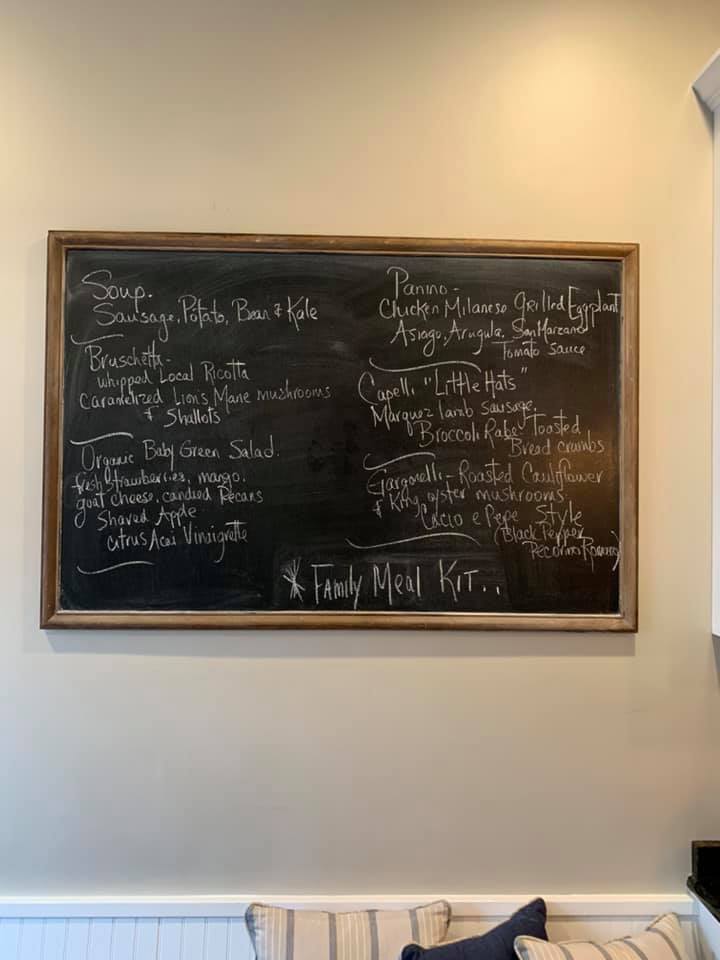 Soup.
Sausage, Potato, Bean & Kale
Bruschetta -
whipped Local Ricotta
Caramelized Lion's Mane mushrooms
& Shallots
Organic Baby Green Salad.
fresh strawberries, mango.
goat cheese, candied Pecans
Shaved Apple
citrus Acai Vinaigrette
Panino -
Chicken Milanese Grilled Eggplant
Asiago, Arugula, San Marzano
Tomato Sauce
Capelli "Little Hats"
Marquez lamb sausage,
Broccoli Rabe Toasted
Bread crumbs
Garganelli - Roasted Cauliflower
& King oyster mushrooms.
Cacio e Pepe Style
(Black Pepper
Pecorino Romano)
* Family Meal Kit..